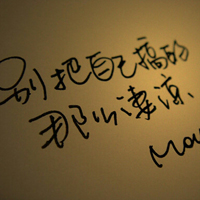 别把自己搞的
那么凄凉.